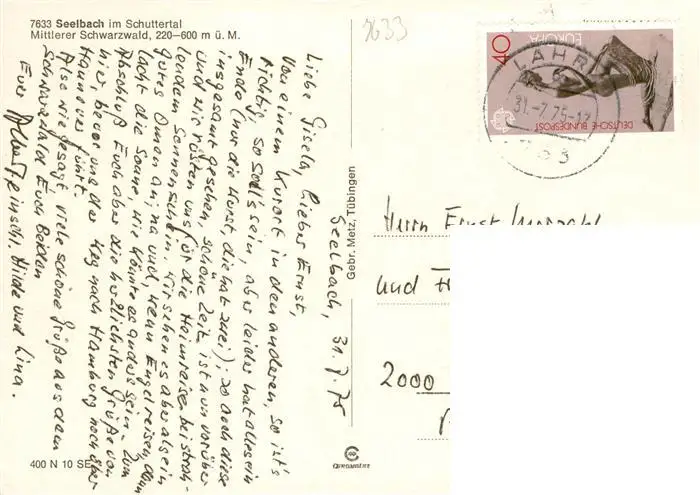 7633 Seelbach im Schuttertal
Mittlerer Schwarzwald, 220–600 m ü. M.
7633
40
EUROPA
DEUTSCHE BUNDESPOST
LAHR
31.-7.75-17
763
Seelbach, 31.7.75
Liebe Gisela, lieber Ernst,
Von einem Kurort in den anderen, so ist's
richtig, so soll's sein, aber leider hat alles ein
Ende (nur die Wurst, die hat zwei); so auch diese
insgesamt gesehen, schöne Zeit, ist nun vorüber
und wir rüsten uns für die Heimreise bei strah-
lendem Sonnenschein. Wir sehen es aber als ein
gutes Omen an, na und, wenn Engel reisen, dann
lacht die Sonne, wie könnte es anders sein. Zum
Abschluß Euch aber die herzlichsten Grüße von
hier, bevor uns der Weg nach Hamburg noch über
Hannover führt.
Also wie gesagt viele schöne Grüße aus dem
Schwarzwald Euch beiden
Euer
Hilde und Lina.
Gebr. Metz, Tübingen
Herrn Ernst
und
2000
400 N 10 SE